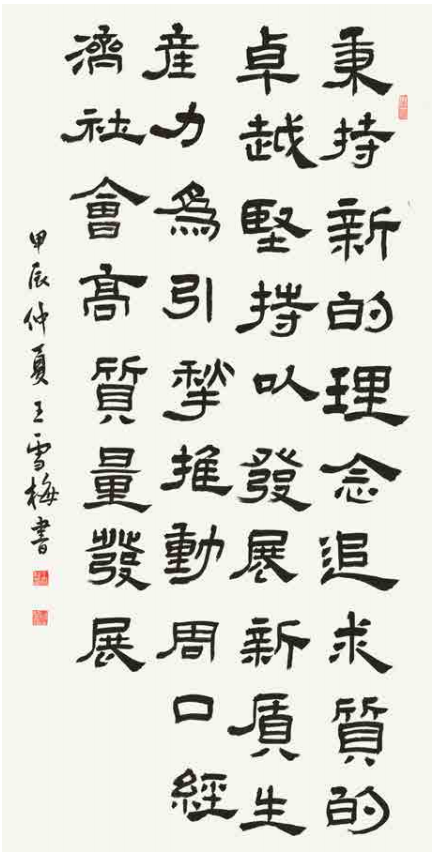 秉持新的理念追求質的
卓越堅持以發展新質生
産力爲引擎推動周口經
濟社會高質量發展
甲辰仲夏王雪梅書